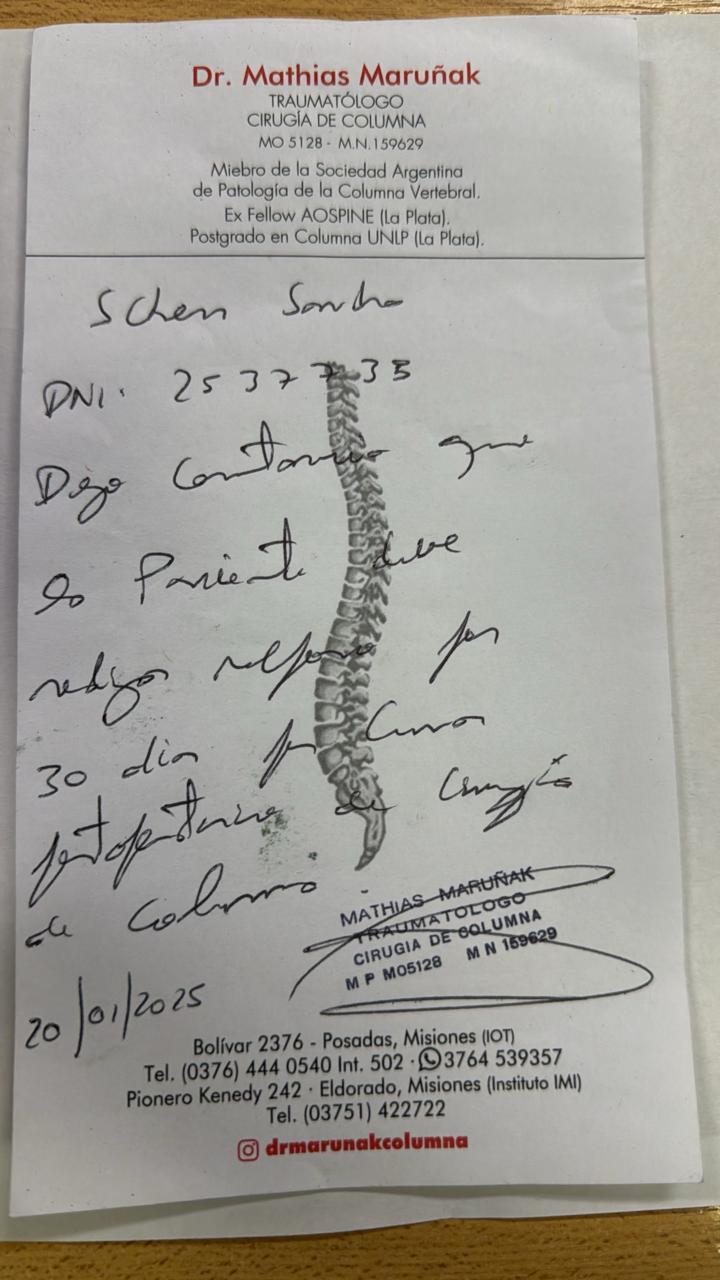 Dr. Mathias Maruñak
TRAUMATÓLOGO
CIRUGÍA DE COLUMNA
MO 5128 - M.N.159629
Miebro de la Sociedad Argentina
de Patología de la Columna Vertebral.
Ex Fellow AOSPINE (La Plata).
Postgrado en Columna UNLP (La Plata).
DNI. 25 377 35
Dejo constancia que
la Paciente debe
realizar reposo por
30 dias por Curso
postoperatorio de Cirugía
de Columna.
MATHIAS MARUÑAK
TRAUMATOLOGO
CIRUGIA DE COLUMNA
M P M05128 M N 159629
20/01/2025
Bolívar 2376 - Posadas, Misiones (IOT)
Tel. (0376) 444 0540 Int. 502 · 3764 539357
Pionero Kenedy 242 · Eldorado, Misiones (Instituto IMI)
Tel. (03751) 422722
drmarunakcolumna